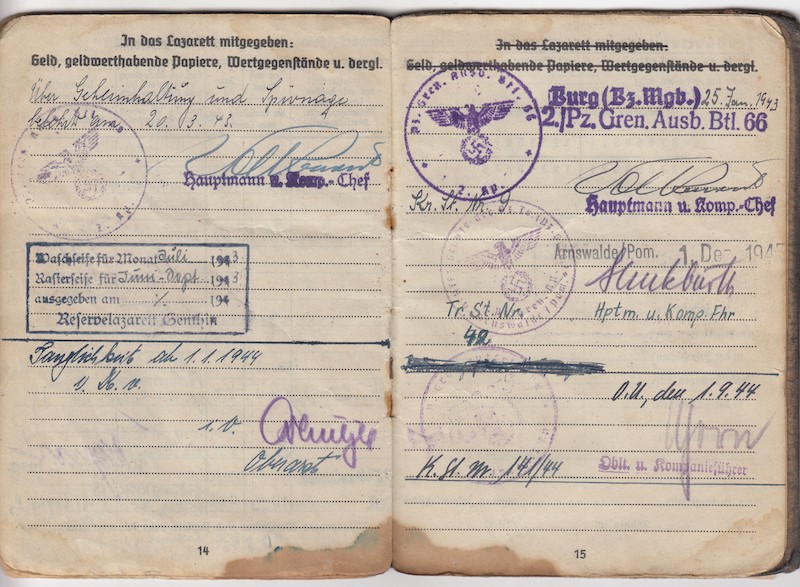 In das Lazarett mitgegeben:
Geld, geldwerthabende Papiere, Wertgegenstände u. dergl.
Über Geheimhaltung und Spionage
belehrt am 20.3.43.
Hauptmann u. Komp.-Chef
Waschseife für Monat Juli 1943
Rasierseife für Juni-Sept 1943
ausgegeben am 194
Reservelazarett Genthin
Tauglichkeit ab 1.1.1944
i.V.
Oberarzt
14
In das Lazarett mitgegeben:
Geld, geldwerthabende Papiere, Wertgegenstände u. dergl.
Pz. Gren. Ausb. Btl. 66
2. Kp.
Burg (Bz. Mgb.) 25 Jan. 1943
2./Pz. Gren. Ausb. Btl. 66
Hauptmann u. Komp.-Chef
Kr. St. Nr. 9
Arnswalde/Pom. 1 Dez. 194
Tr. St. Nr. Hptm. u. Komp. Fhr
42
O.U., den 1.9.44
K. St. Nr. 141/44 Oblt. u. Kompanieführer
15